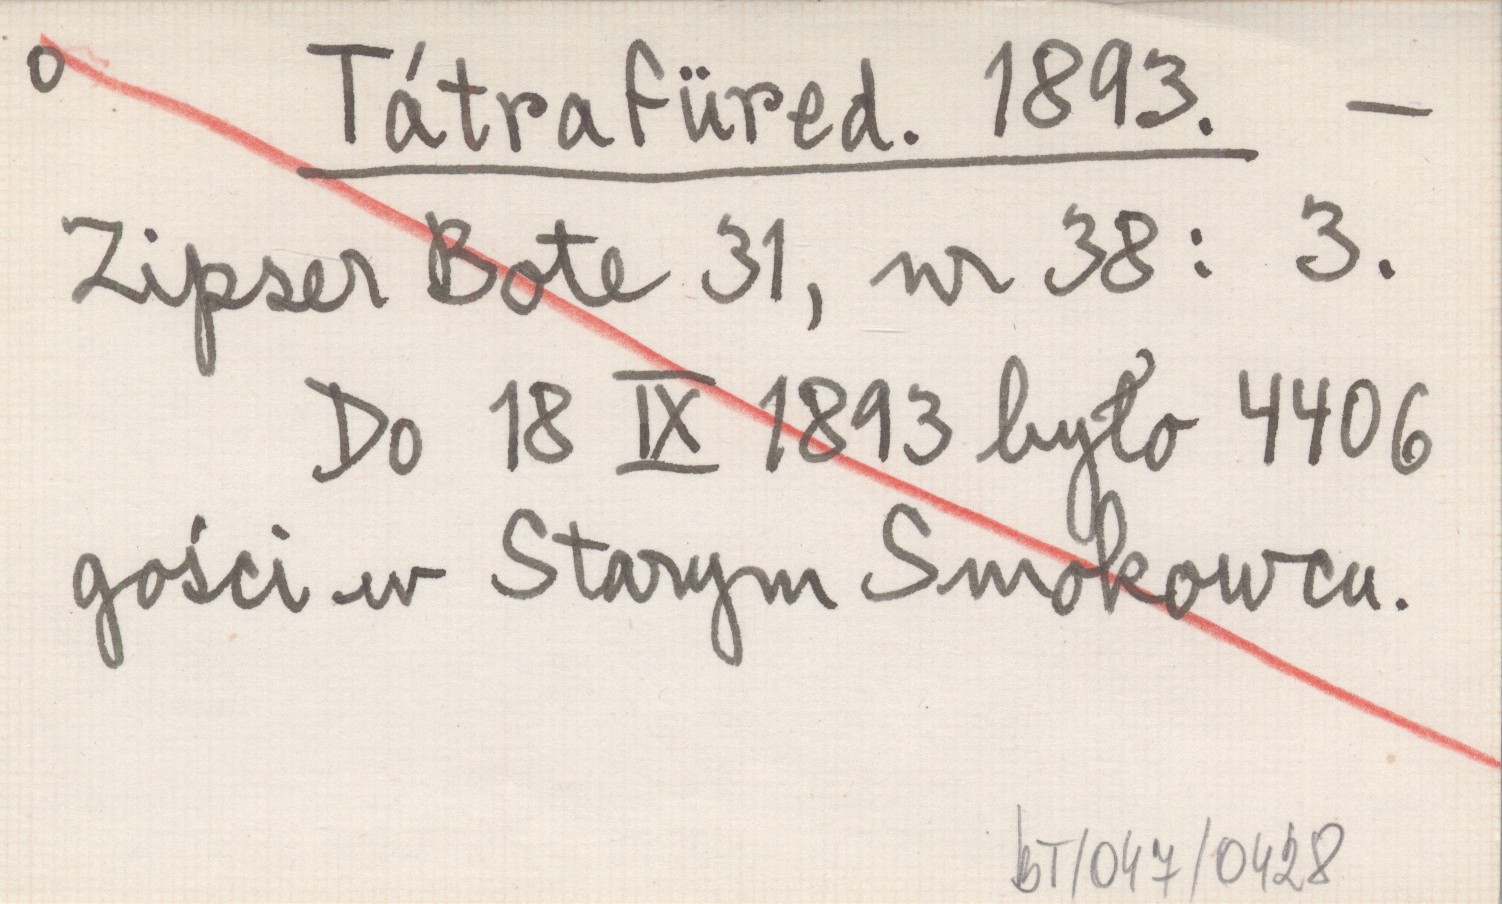 o Tátrafüred. 1893. —
Zipser Bote 31, nr 38: 3.
Do 18 IX 1893 było 4406
gości w Starym Smokowcu.
bT/047/0428